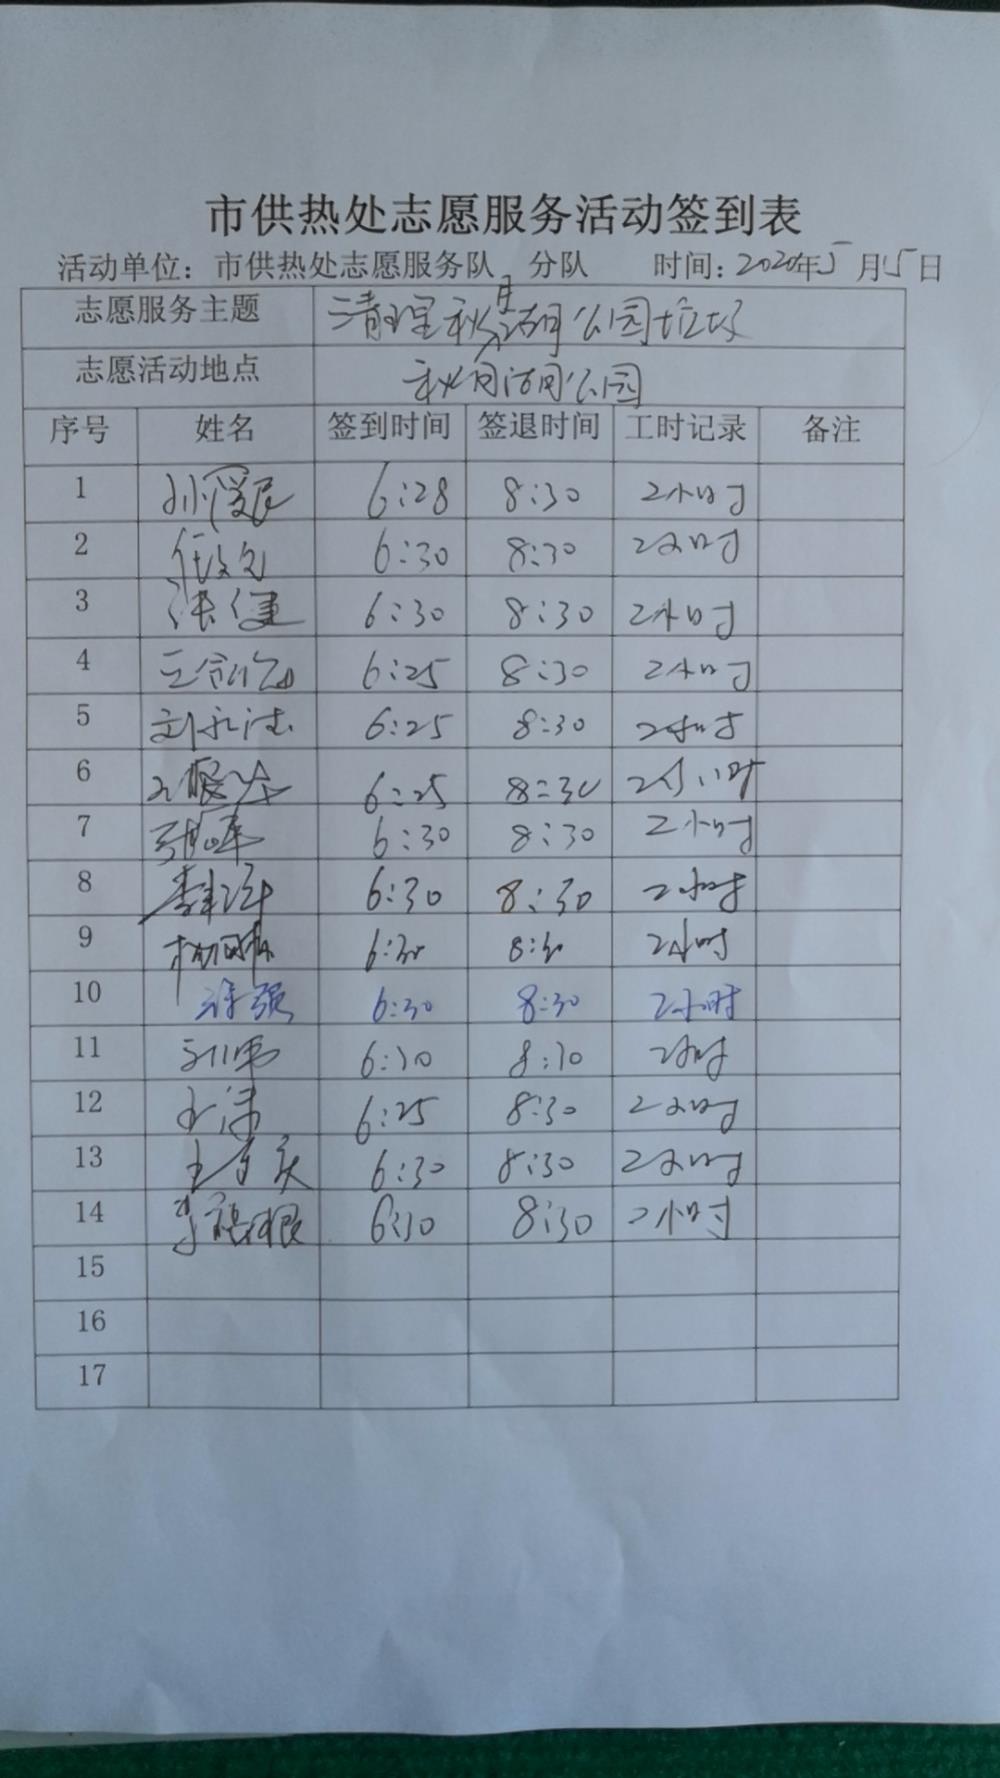 市供热处志愿服务活动签到表
活动单位：市供热处志愿服务队 分队 时间：2020年5月15日
志愿服务主题 清理秋月湖公园垃圾
志愿活动地点 秋月湖公园
序号 姓名 签到时间 签退时间 工时记录 备注
1 孙爱民 6:28 8:30 2小时
2 任文 6:30 8:30 2小时
3 张健 6:30 8:30 2小时
4 6:25 8:30 2小时
5 刘永 6:25 8:30 2小时
6 6:25 8:30 2个小时
7 张峰 6:30 8:30 2小时
8 李 6:30 8:30 2小时
9 杨 6:30 8:30 2小时
10 许强 6:30 8:30 2小时
11 刘伟 6:30 8:30 2小时
12 王涛 6:25 8:30 2小时
13 王庆 6:30 8:30 2小时
14 李根 6:30 8:30 2小时
15
16
17